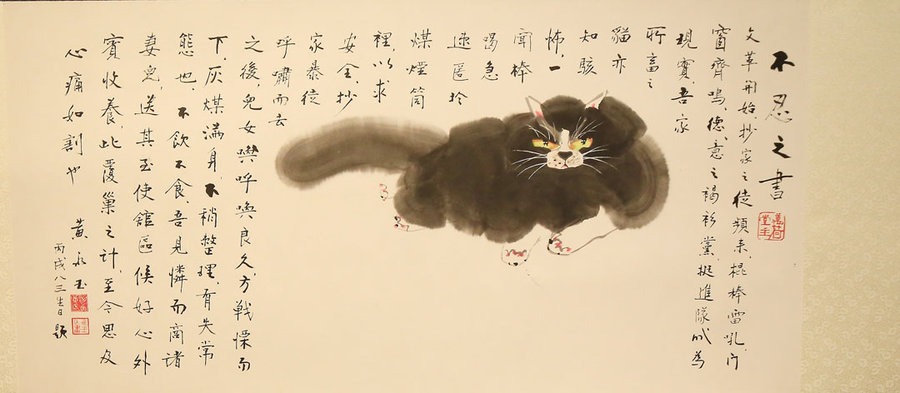 不忍之書
文革開始抄家之徒頻來棍棒雷吼,门
窗齊鳴,德、意之褐衫黨、挺進隊以為
現實吾家
所畜之
貓亦
知駭
怖,一
聞棒
喝急
速匿於
煤煙筒
裡,以求
安全,抄
家暴徒
呼嘯而去
之後,兒女與呼喚良久,方戰慄而
下,灰煤滿身,不稍整理,有失常
態也,不飲不食,吾見憐而商諸
妻兒,送其至使館區候好心外
賓收養,此覆巢之計,至今思及
心痛如割也
黃永玉
丙戌八三生日題